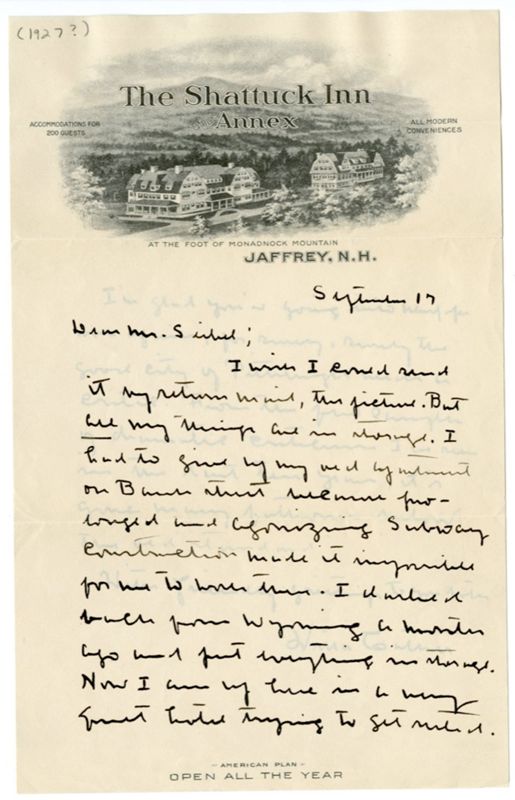 (1927?)
The Shattuck Inn
and Annex
ACCOMMODATIONS FOR
200 GUESTS
ALL MODERN
CONVENIENCES
AT THE FOOT OF MONADNOCK MOUNTAIN
JAFFREY, N.H.
September 17
Dear Mr. Seibel;
I wish I could send
it by return mail, the picture. But
all my things are in storage. I
had to give up my old apartment
on Bank street because pro-
longed and agonizing Subway
Construction made it impossible
for me to work there. I dashed
back from Wyoming a month
ago and put everything in storage.
Now I am up here in a very
quiet hotel trying to get rested.
- AMERICAN PLAN -
OPEN ALL THE YEAR